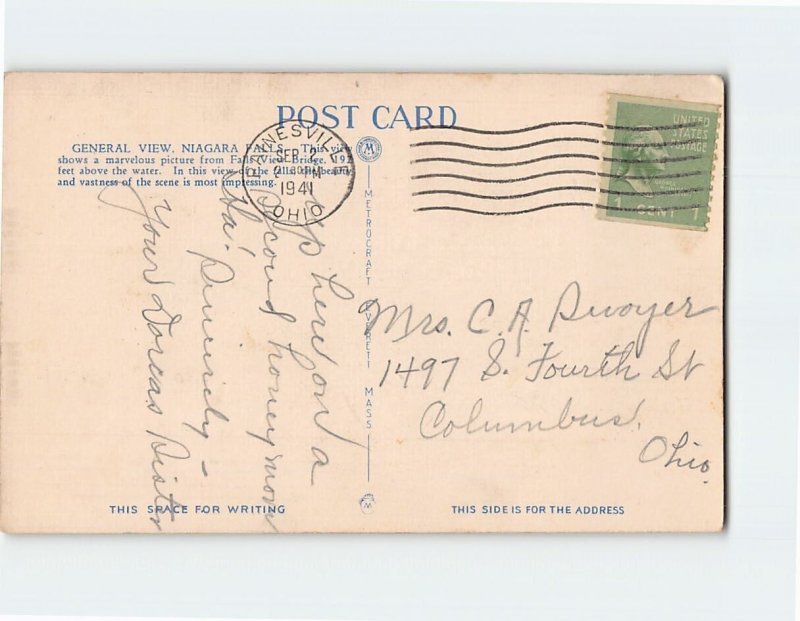 POST CARD
GENERAL VIEW, NIAGARA FALLS. This view
shows a marvelous picture from Falls View Bridge, 192
feet above the water. In this view of the falls the beauty
and vastness of the scene is most impressing.
PAINESVILLE
SEP 2
PM
1941
OHIO
UNITED
STATES
POSTAGE
1 CENT 1
METROCRAFT EVERETT MASS
up here on a
second honeymoon
Ha! Sincerely -
Your Dorcas Sister
Mrs. C. A. Dwoyer
1497 S. Fourth St
Columbus,
Ohio.
THIS SPACE FOR WRITING
THIS SIDE IS FOR THE ADDRESS